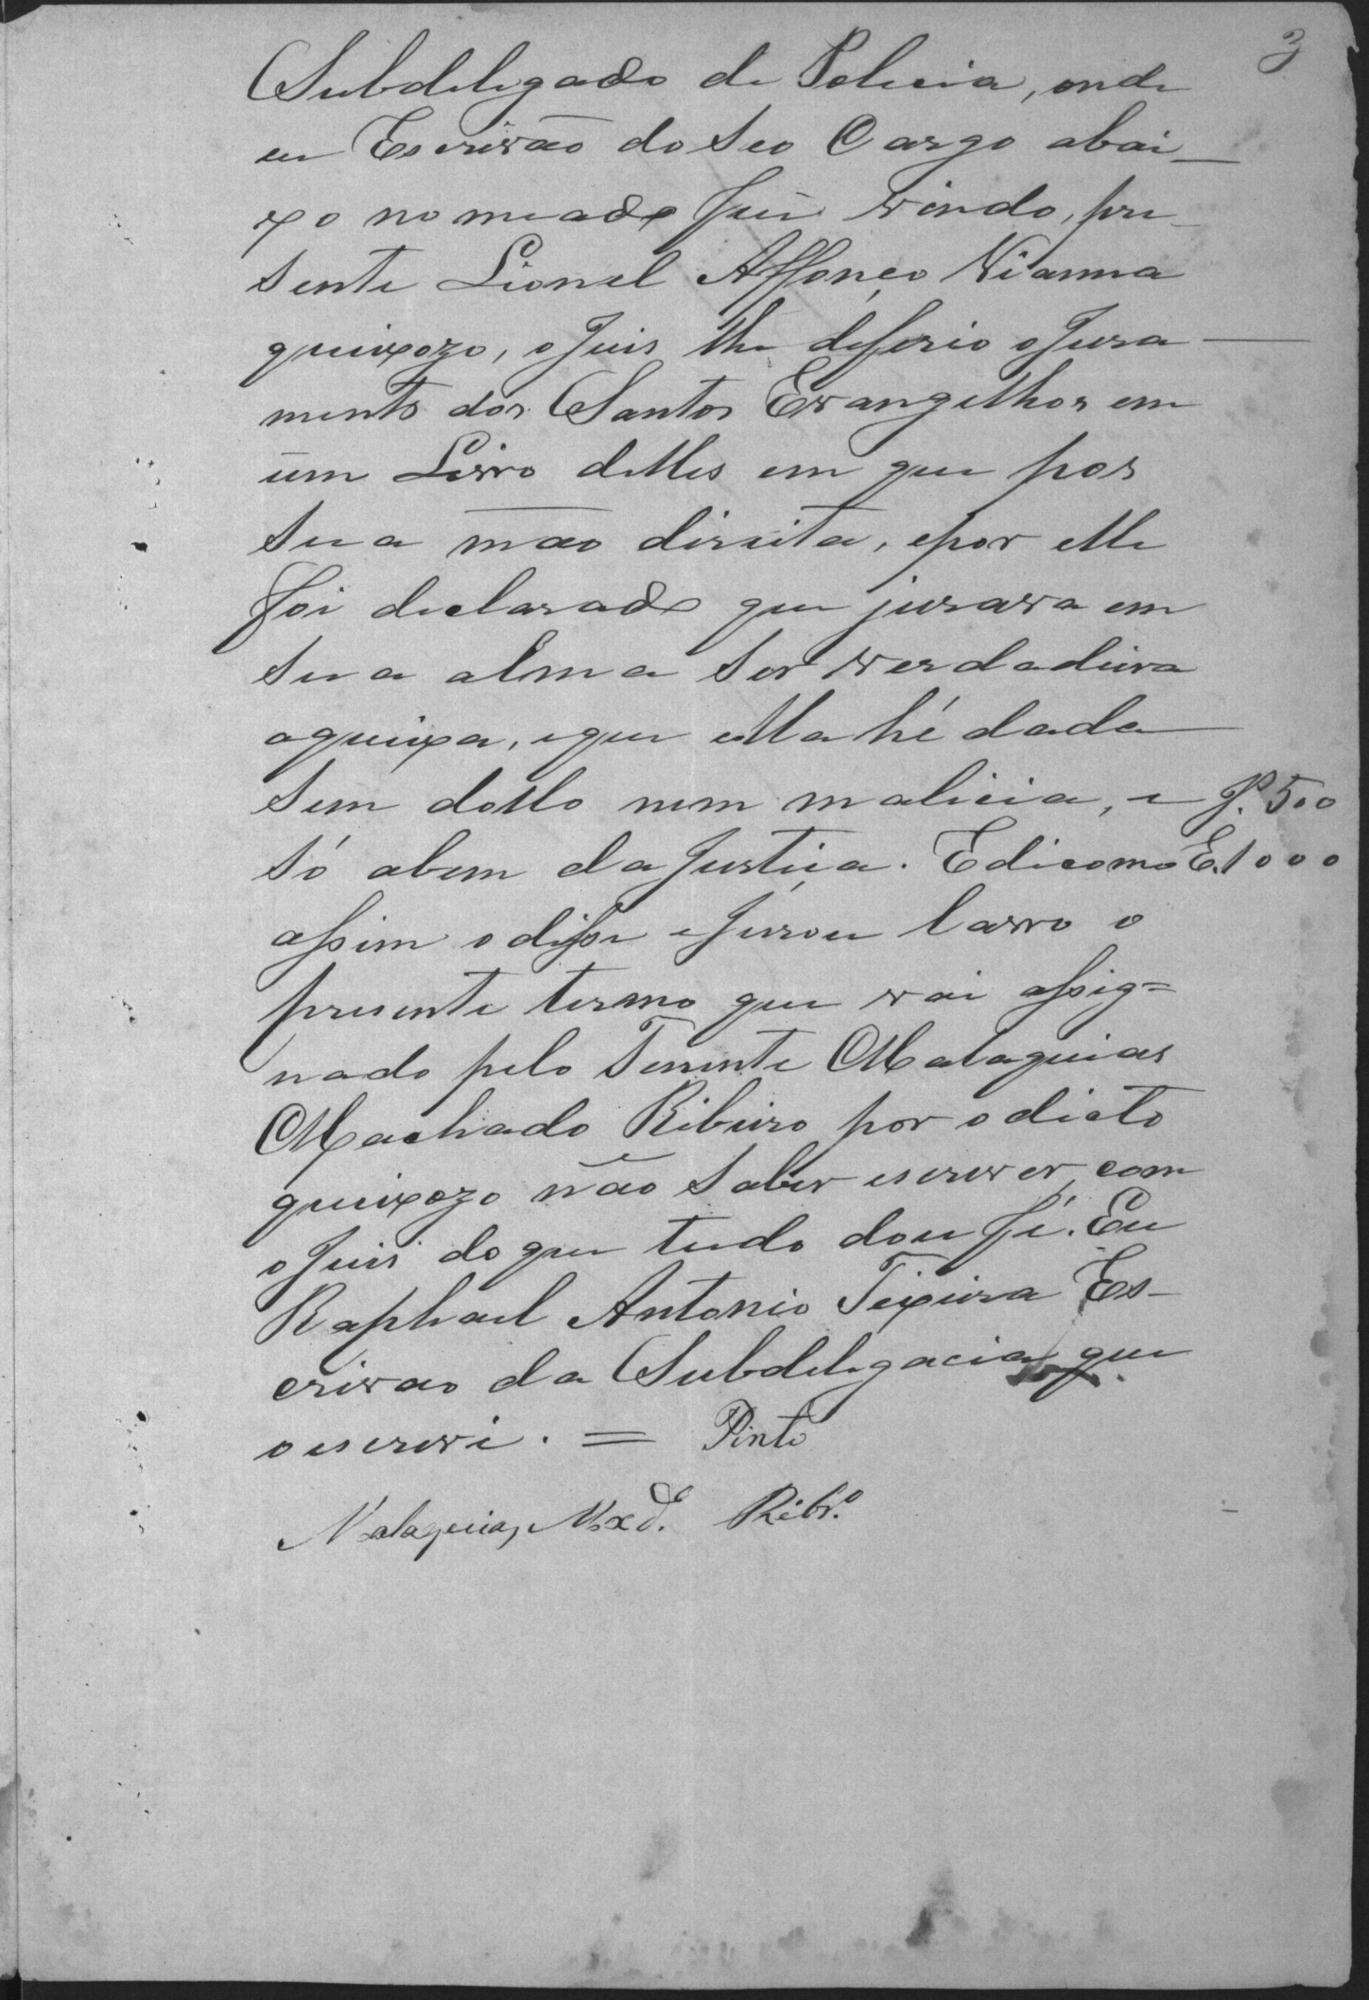 3
Subdelegado de Policia, onde
eu Escrivão do seo Cargo abai-
xo nomeado fui vindo, pre-
sente Lionel Affonço Vianna
queixozo, o Juis lhe deferio o Jura-
mento dos Santos Evangelhos em
um Livro delles em que pos
sua mão direita, e por elle
foi declarado que jurava em
sua alma ser verdadeira
a queixa, e que ella hé dada
sem dollo nem malicia, e J. 500
só a bem da Justiça. E di como E. 1000
assim o disse e Jurou lavro o
presente termo que vai assig=
nado pelo Tenente Malaquias
Machado Ribeiro por o dicto
queixozo não saber escrever, com
o Juis do que tudo dou fé. Eu
Raphael Antonio Teixeira Es-
crivão da Subdelegacia que
o escrevi. = Pinto
Malaquias Mxdo. Ribr.o